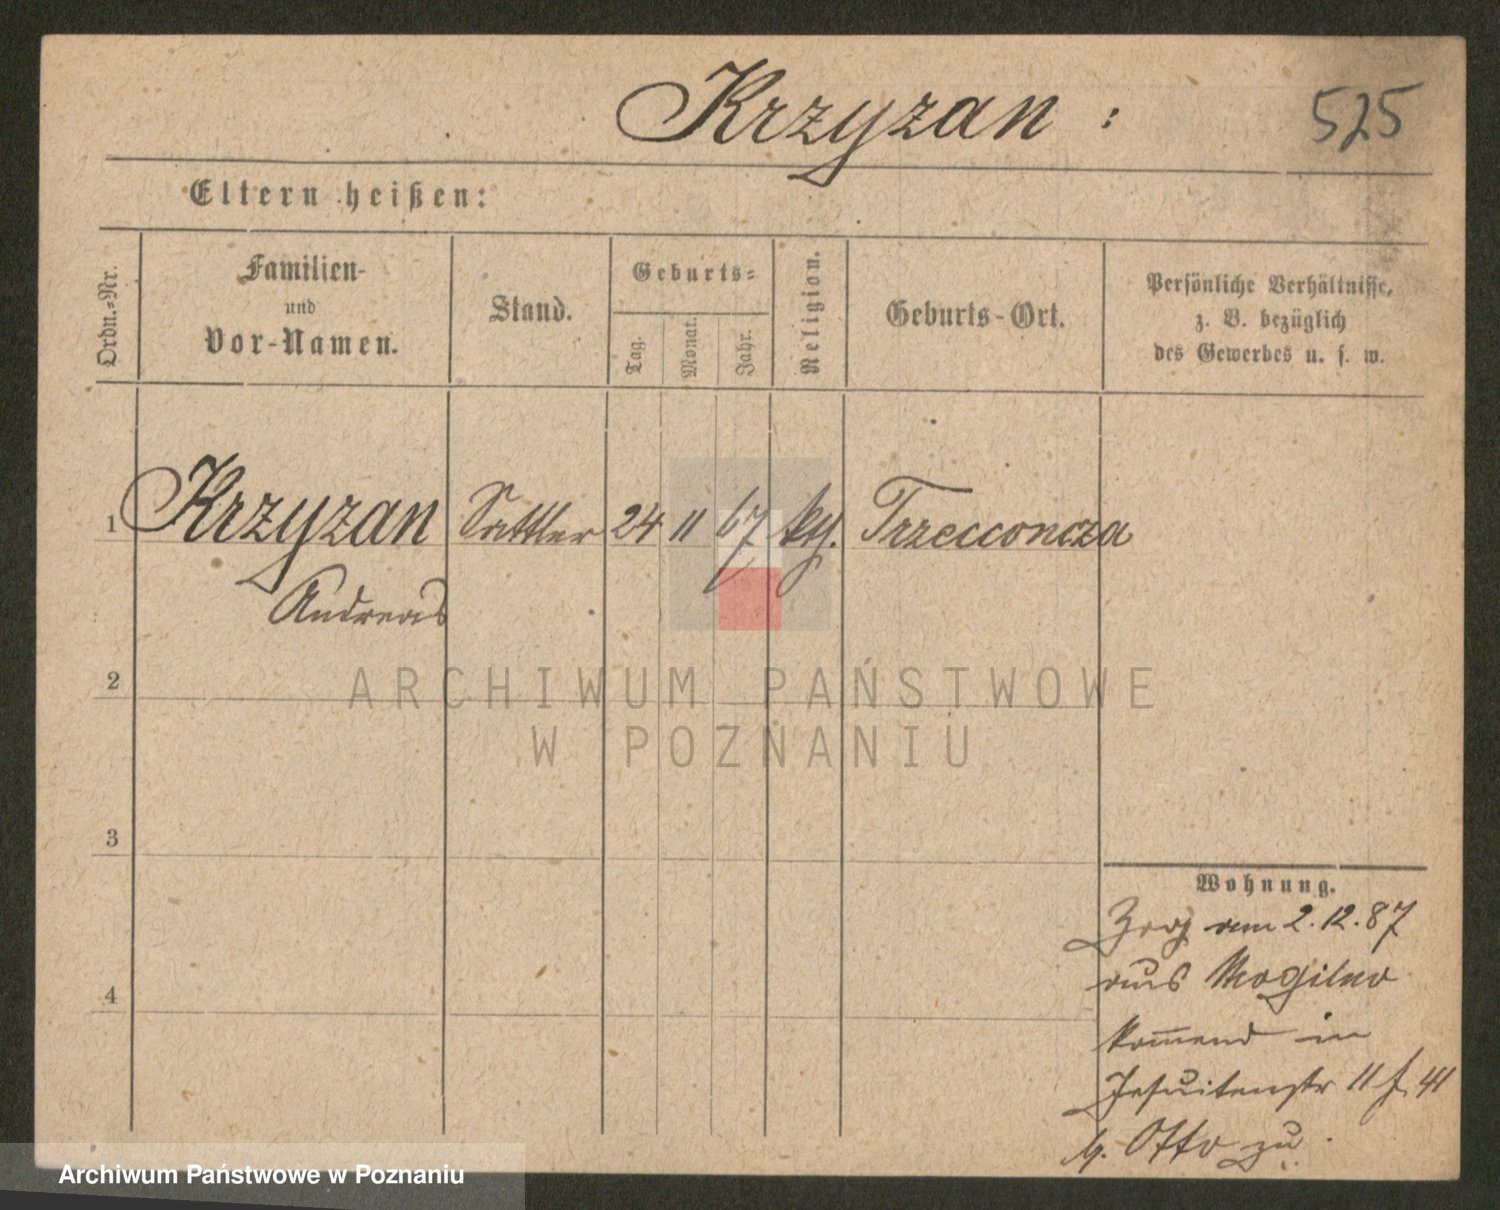 Krzyzan :
525
Eltern heißen:
Ordn.-Nr.
Familien-
und
Vor-Namen.
Stand.
Geburts-
Tag.
Monat.
Jahr.
Religion.
Geburts-Ort.
Persönliche Verhältnisse,
z. B. bezüglich
des Gewerbes u. s. w.
1 Krzyzan Sattler 24 11 67 kth. Trzecconcza
Andreas
2
3
4
Wohnung.
am 2.12.87
aus Mogilno
kom̅end in
Jesuitenstr 11 f. 41
b. Otto zu.
ARCHIWUM PAŃSTWOWE
W POZNANIU
Archiwum Państwowe w Poznaniu